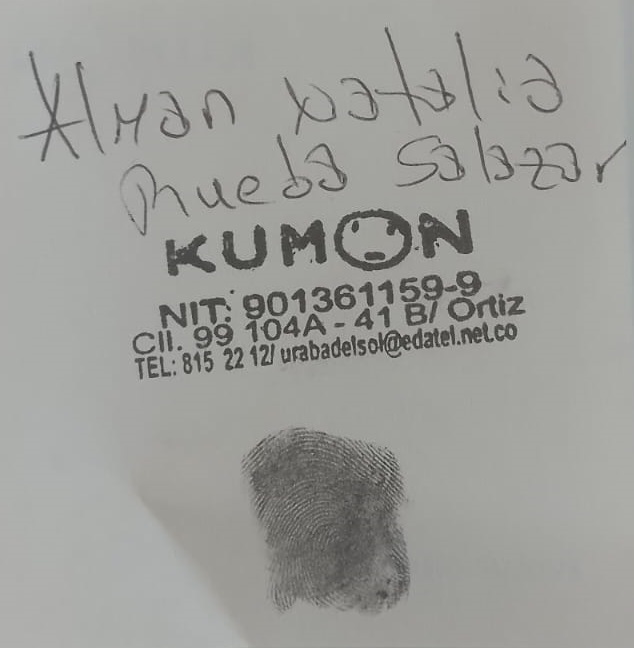 Natalia
Rueda Salazar
KUMON
NIT: 901361159-9
Cll. 99 104A - 41 B/ Ortiz
TEL: 815 22 12/ urabadelsol@edatel.net.co